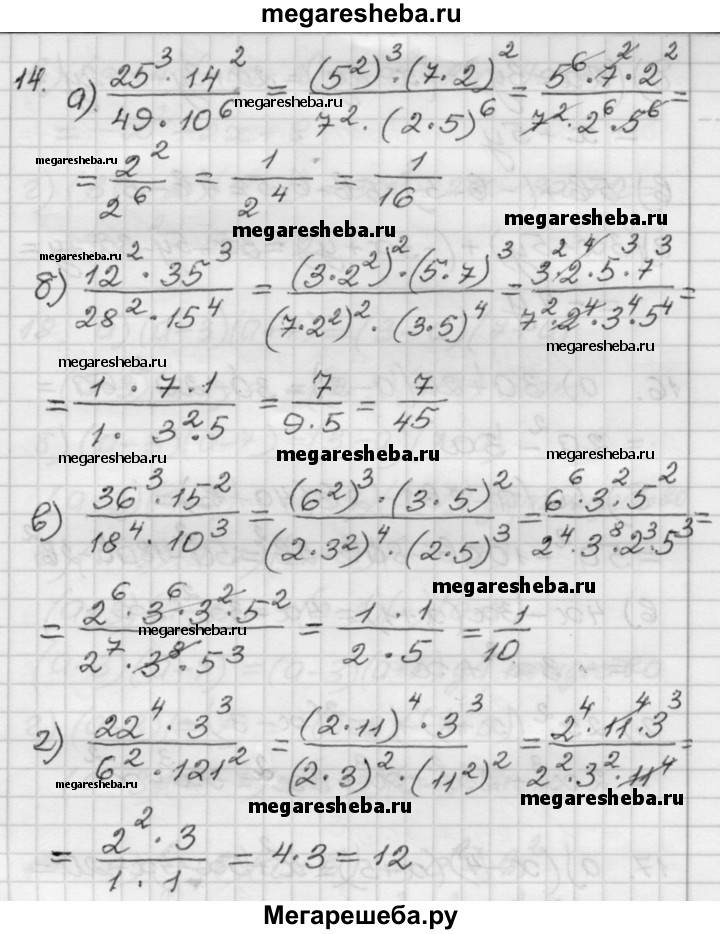 megaresheba.ru
14. а) 25³·14² / 49·10⁶ = (5²)³·(7·2)² / 7²·(2·5)⁶ = 5⁶·7²·2² / 7²·2⁶·5⁶ =
megaresheba.ru megaresheba.ru
megaresheba.ru
= 2² / 2⁶ = 1 / 2⁴ = 1 / 16
megaresheba.ru
megaresheba.ru
megaresheba.ru
б) 12²·35³ / 28²·15⁴ = (3·2²)²·(5·7)³ / (7·2²)²·(3·5)⁴ = 3²·2⁴·5³·7³ / 7²·2⁴·3⁴·5⁴ =
megaresheba.ru megaresheba.ru
= 1·7·1 / 1·3²·5 = 7 / 9·5 = 7 / 45
megaresheba.ru megaresheba.ru megaresheba.ru
в) 36³·15² / 18⁴·10³ = (6²)³·(3·5)² / (2·3²)⁴·(2·5)³ = 6⁶·3²·5² / 2⁴·3⁸·2³·5³ =
megaresheba.ru
= 2⁶·3⁶·3²·5² / 2⁷·3⁸·5³ = 1·1 / 2·5 = 1 / 10
megaresheba.ru megaresheba.ru
г) 22⁴·3³ / 6²·121² = (2·11)⁴·3³ / (2·3)²·(11²)² = 2⁴·11⁴·3³ / 2²·3²·11⁴ =
megaresheba.ru megaresheba.ru megaresheba.ru
= 2²·3 / 1·1 = 4·3 = 12
Мегарешеба.ру